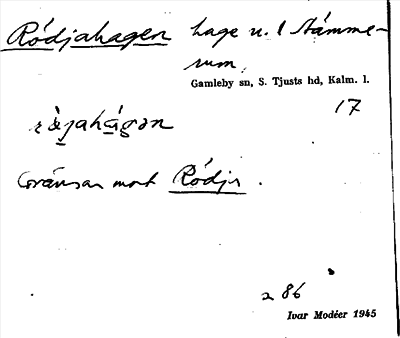 Ródjahagen hage u. 1 Stámme-
rum,
Gamleby sn, S. Tjusts hd, Kalm. l.
17
Gränsar mot Ródja.
a 86
Ivar Modéer 1945